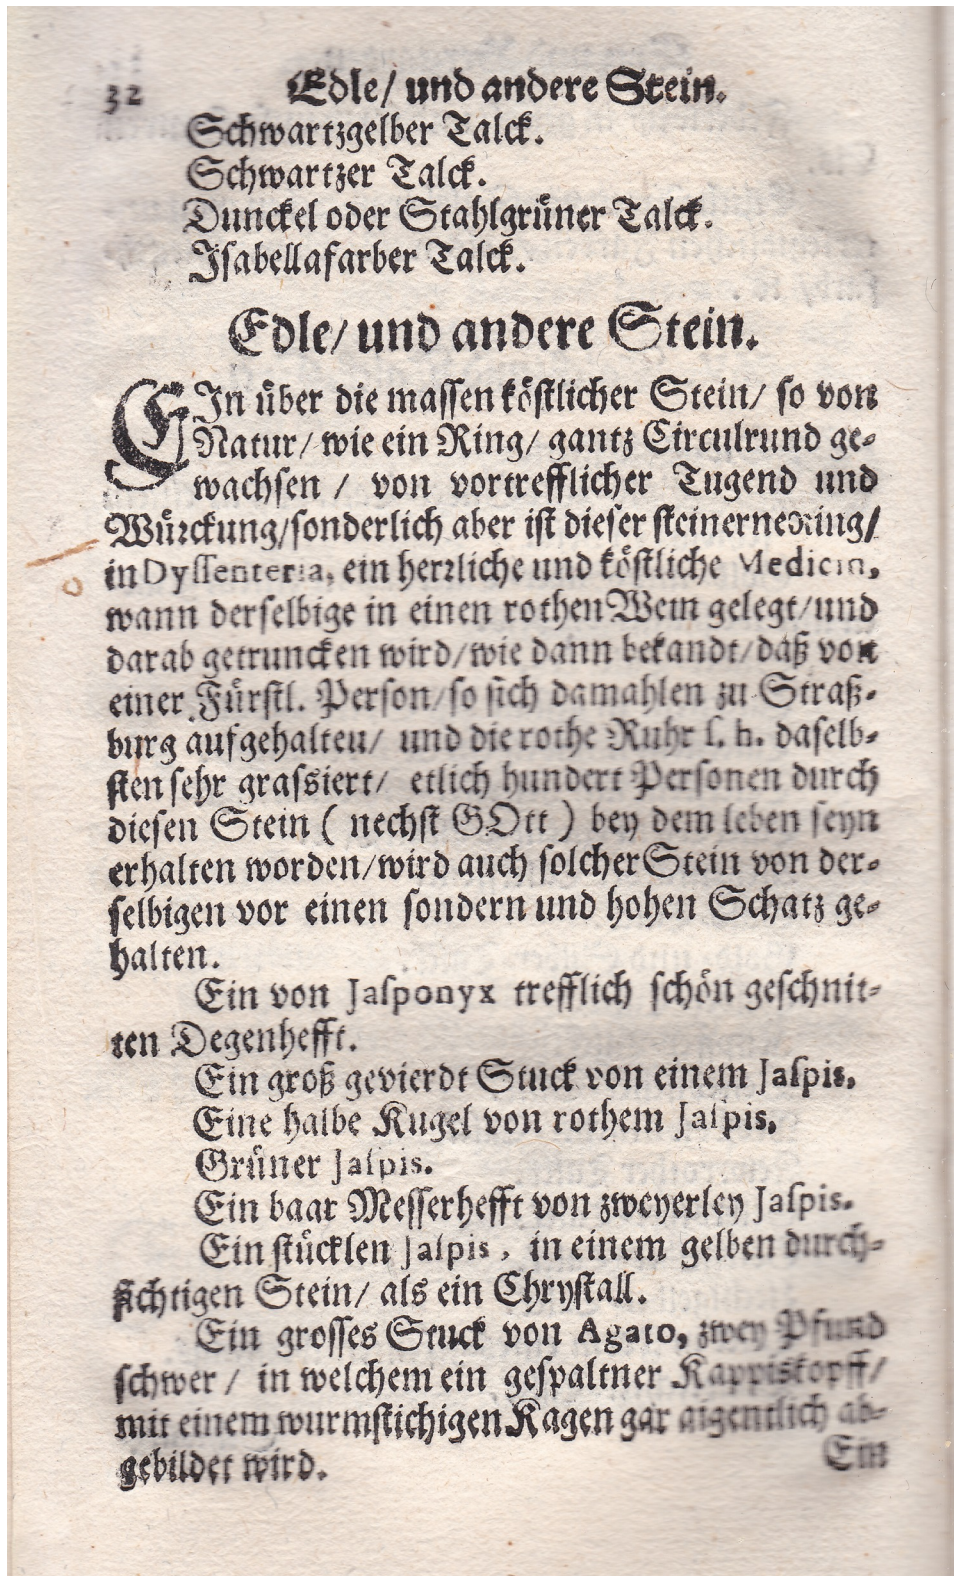 32 Edle/ und andere Stein.
Schwartzgelber Talck.
Schwartzer Talck.
Dunckel oder Stahlgrüner Talck.
Isabellafarber Talck.
Edle/ und andere Stein.
EIn über die massen köstlicher Stein/ so von
Natur/ wie ein Ring/ gantz Circulrund ge-
wachsen / von vortrefflicher Tugend und
Würckung/sonderlich aber ist dieser steinerne Ring/
in Dyssenteria, ein herrliche und köstliche Medicin,
wann derselbige in einen rothen Wein gelegt/und
darab getruncken wird/wie dann bekandt/daß von
einer Fürstl. Person/so sich damahlen zu Straß-
burg aufgehalten/ und die rothe Ruhr s. h. daselb-
sten sehr grassiert/ etlich hundert Personen durch
diesen Stein ( nechst GOtt ) bey dem leben seyn
erhalten worden/wird auch solcher Stein von der-
selbigen vor einen sondern und hohen Schatz ge-
halten.
Ein von Jasponyx trefflich schön geschnit-
ten Degenhefft.
Ein groß gevierdt Stuck von einem Jaspis.
Eine halbe Kugel von rothem Jaspis.
Grüner Jaspis.
Ein baar Messerhefft von zweyerley Jaspis.
Ein stücklen Jaspis, in einem gelben durch-
sichtigen Stein/ als ein Chrystall.
Ein grosses Stuck von Agato, zwey Pfund
schwer / in welchem ein gespaltner Kappiskopff/
mit einem wurmstichigen Kagen gar aigentlich ab-
gebildet wird.
Ein